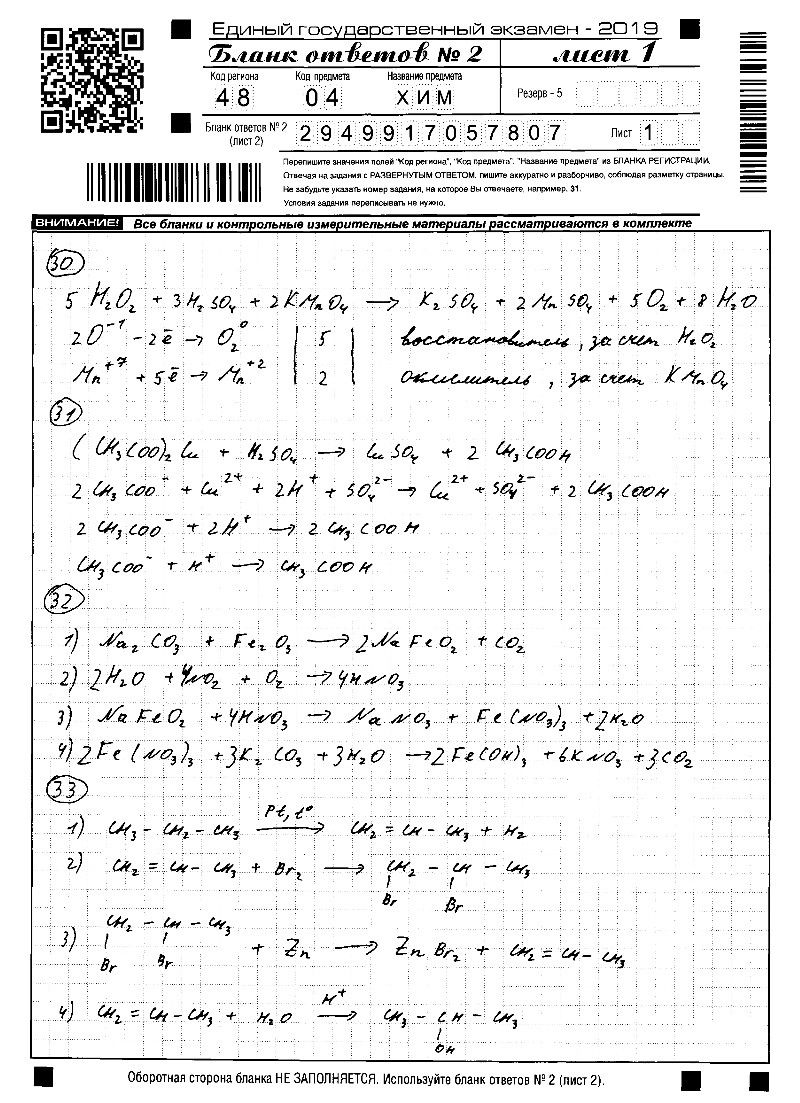 Единый государственный экзамен - 2019
Бланк ответов № 2 лист 1
Код региона Код предмета Название предмета
48 04 ХИМ Резерв - 5
Бланк ответов № 2 (лист 2) 2949917057807 Лист 1
Перепишите значения полей "Код региона", "Код предмета", "Название предмета" из БЛАНКА РЕГИСТРАЦИИ.
Отвечая на задания с РАЗВЕРНУТЫМ ОТВЕТОМ, пишите аккуратно и разборчиво, соблюдая разметку страницы.
Не забудьте указать номер задания, на которое Вы отвечаете, например, 31.
Условия задания переписывать не нужно.
ВНИМАНИЕ! Все бланки и контрольные измерительные материалы рассматриваются в комплекте
30
5 H₂O₂ + 3H₂SO₄ + 2KMnO₄ → K₂SO₄ + 2MnSO₄ + 5O₂ + 8H₂O
2O⁻¹ - 2ē → O₂⁰ | 5 | восстановитель, за счет H₂O₂
Mn⁺⁷ + 5ē → Mn⁺² | 2 | окислитель, за счет KMnO₄
31
(CH₃COO)₂Cu + H₂SO₄ → CuSO₄ + 2 CH₃COOH
2 CH₃COO⁻ + Cu²⁺ + 2H⁺ + SO₄²⁻ → Cu²⁺ + SO₄²⁻ + 2 CH₃COOH
2 CH₃COO⁻ + 2H⁺ → 2 CH₃COOH
CH₃COO⁻ + H⁺ → CH₃COOH
32
1) Na₂CO₃ + Fe₂O₃ → 2NaFeO₂ + CO₂
2) 2H₂O + 4NO₂ + O₂ → 4HNO₃
3) NaFeO₂ + 4HNO₃ → NaNO₃ + Fe(NO₃)₃ + 2H₂O
4) 2Fe(NO₃)₃ + 3K₂CO₃ + 3H₂O → 2Fe(OH)₃ + 6KNO₃ + 3CO₂
33
Pt, t°
1) CH₃ - CH₂ - CH₃ → CH₂ = CH - CH₃ + H₂
2) CH₂ = CH - CH₃ + Br₂ → CH₂ - CH - CH₃
Br Br
CH₂ - CH - CH₃
3) + Zn → ZnBr₂ + CH₂ = CH - CH₃
Br Br
H⁺
4) CH₂ = CH - CH₃ + H₂O → CH₃ - CH - CH₃
OH
Оборотная сторона бланка НЕ ЗАПОЛНЯЕТСЯ. Используйте бланк ответов № 2 (лист 2).